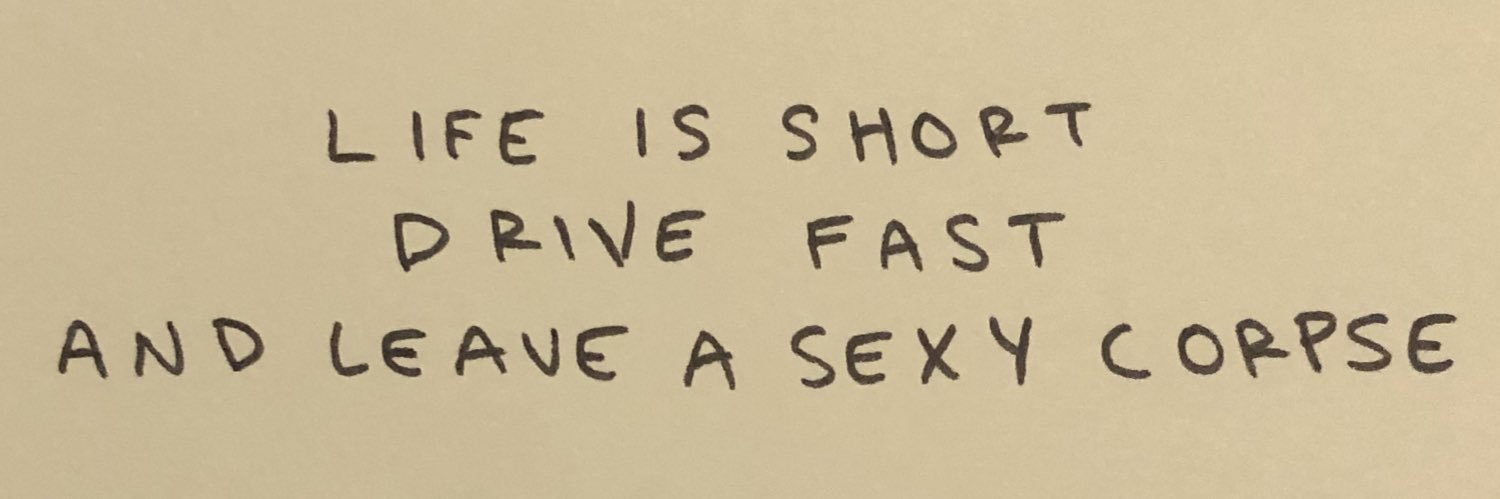 LIFE IS SHORT
DRIVE FAST
AND LEAVE A SEXY CORPSE